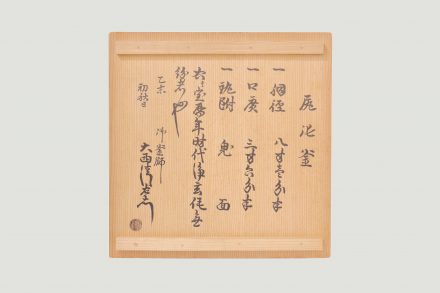 尻張釜
一胴径 八寸壱分半
一口広 三寸六分半
一鐶附 鬼面
右ハ宝暦年時代浄玄作無
紛者也
乙未
初秋日
御釜師
大西清右衛門